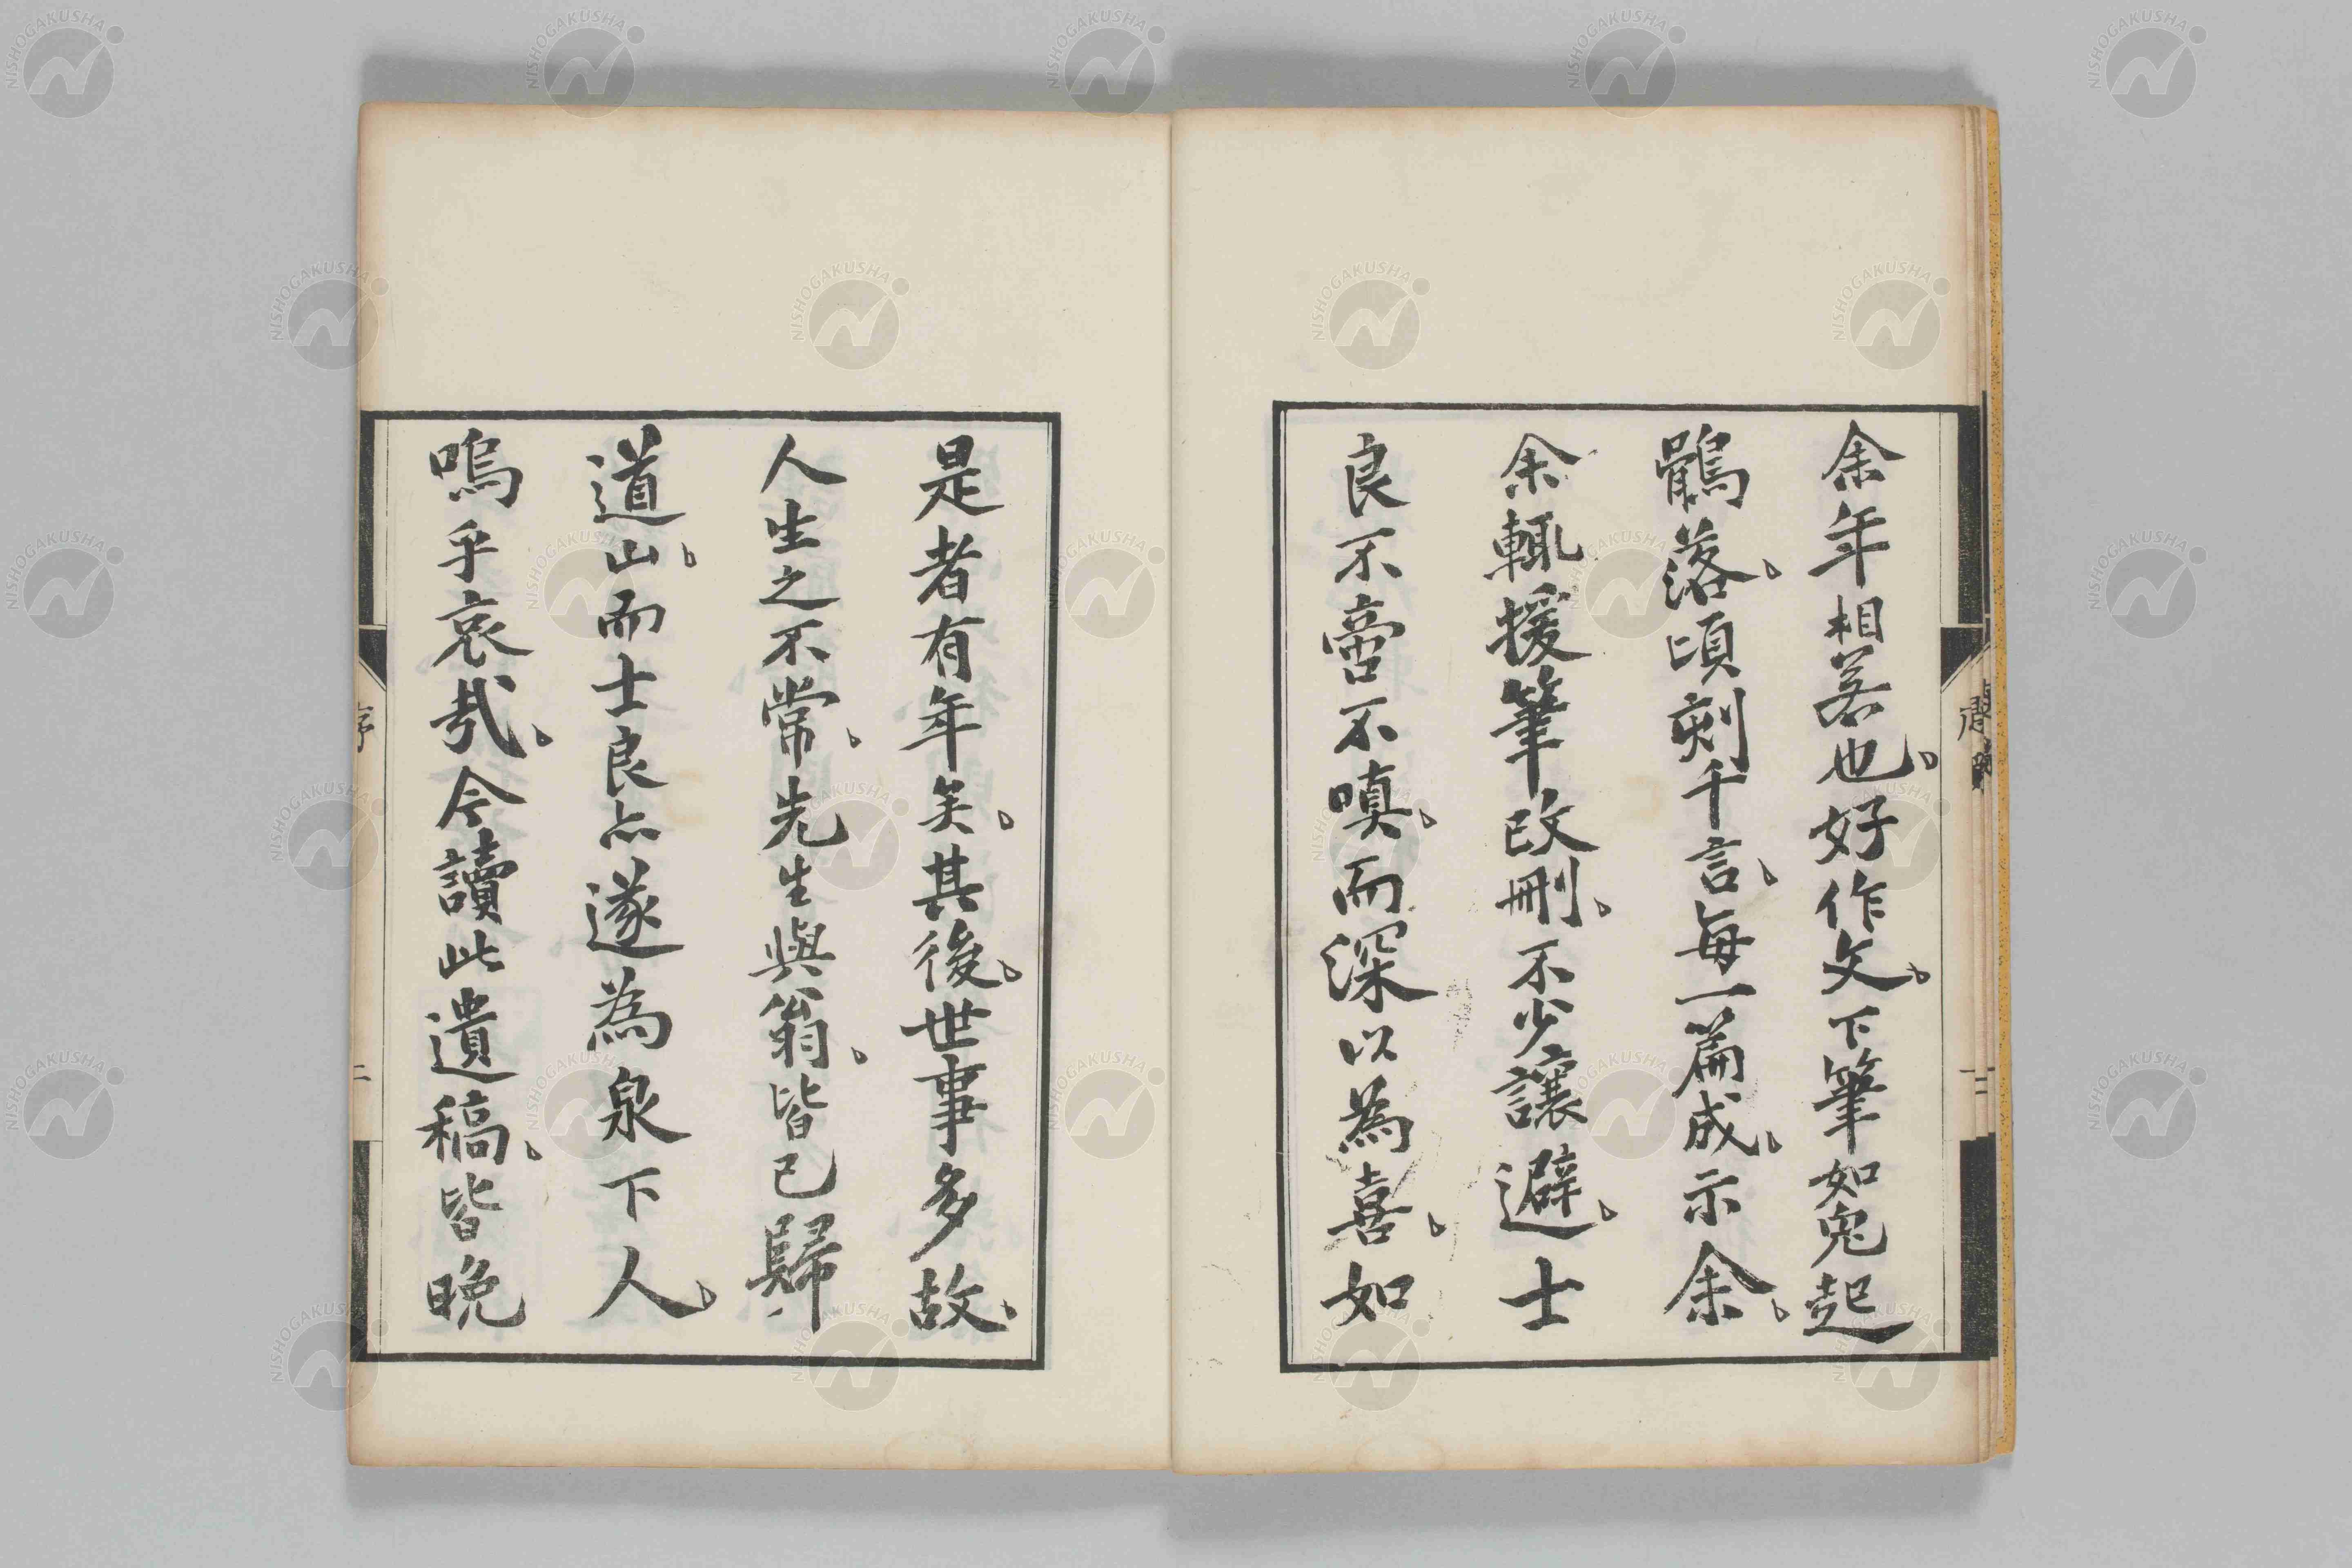 余年相若也。好作文。下筆如兔起
鶻落、頃刻千言、每一篇成、示余、
余輒援筆改刪、不少讓避、士
良不啻不嗔、而深以為喜、如
是者有年矣。其後。世事多故、
人生之不常、先生與翁、皆已歸
道山、而士良亦遂為泉下人、
嗚乎哀哉、今讀此遺稿、皆晚
序
二
NISHOGAKUSHA